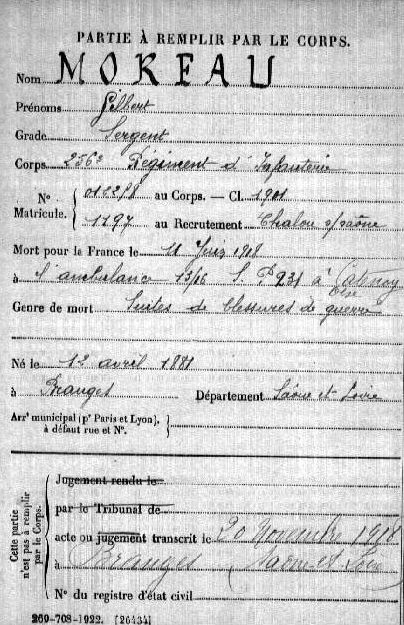 PARTIE À REMPLIR PAR LE CORPS.
Nom MOREAU
Prénoms Gilbert
Grade Sergent
Corps 256e Régiment d'Infanterie
N° 012278 au Corps. — Cl. 1901
Matricule. 1197 au Recrutement Chalon s/Saône
Mort pour la France le 11 Juin 1918
à l'ambulance 13/16 S. P. 231 à Catenoy
Oise
Genre de mort Suites de blessures de guerre
Né le 12 avril 1881
à Branges Département Saône et Loire
Arrt municipal (pr Paris et Lyon),
à défaut rue et N°.
Cette partie n'est pas à remplir par le Corps.
Jugement rendu le
par le Tribunal de
acte ou jugement transcrit le 20 Novembre 1918
à Branges Saône-et-Loire
N° du registre d'état civil
269-708-1922. [26434]